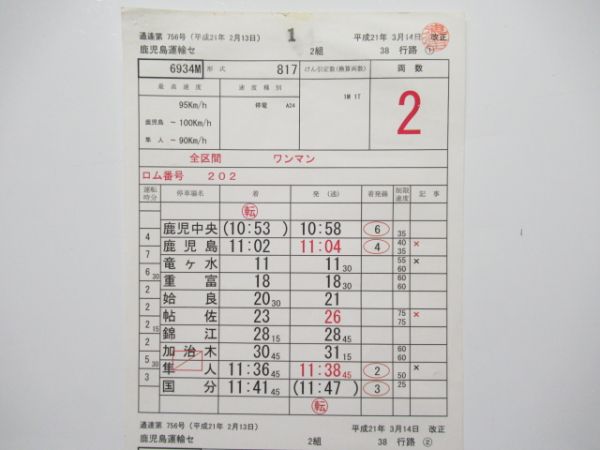 通達第 756号 (平成21年 2月13日) 1 平成21年 3月14日 改正
鹿児島運輸セ 2組 38 行路 ①
6934M 形式 817 けん引定数(換算両数) 両数
最高速度 速度種別 1M 1T 2
95Km/h 停電 A24
鹿児島 ~ 100Km/h
隼人 ~ 90Km/h
全区間 ワンマン
ロム番号 202
運転時分 停車場名 着 発(通) 着発線 制限速度 記事
転
鹿児中央 (10:53 ) 10:58 6 35
4
鹿児島 11:02 11:04 4 40 35 ×
7
竜ヶ水 11 11 30 55 60 ×
6 30
重富 18 18 30 60 60
2
姶良 20 30 21
2
帖佐 23 26 75 75 ×
2 15
錦江 28 15 28 15
2
加治木 30 45 31 15 60 60
5 30
隼人 11:36 45 11:38 45 2 50 ×
3
国分 11:41 45 (11:47 ) 3 25
転
通達第 756号 (平成21年 2月13日) 平成21年 3月14日 改正
鹿児島運輸セ 2組 38 行路 ②